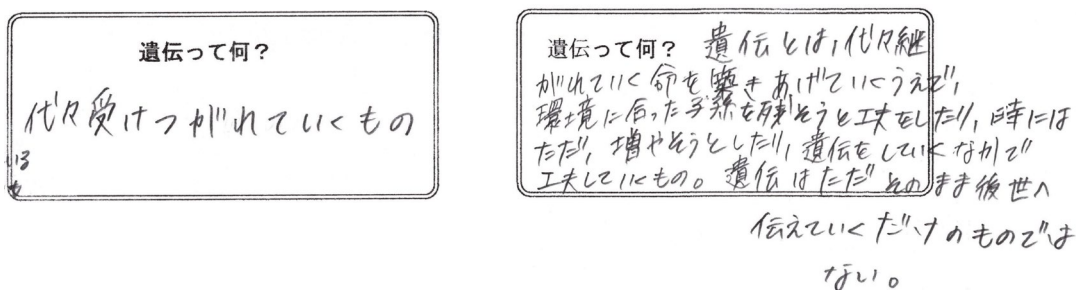 遺伝って何？
代々受けつがれていくもの
いる
遺伝って何？ 遺伝とは，代々継
がれていく命を築きあげていくうえで，
環境に合った子孫を残そうと工夫をしたり，時には
ただ，増やそうとしたり，遺伝をしていくなかで
工夫していくもの。遺伝はただそのまま後世へ
伝えていくだけのものでは
ない。